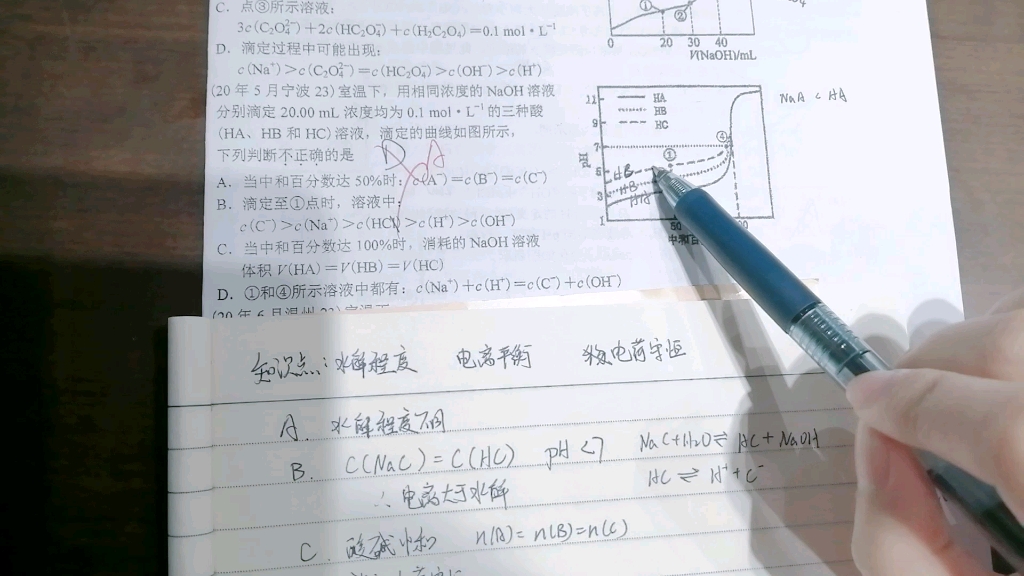 C. 点③所示溶液:
3c(C₂O₄²⁻)+2c(HC₂O₄⁻)+c(H₂C₂O₄)=0.1 mol·L⁻¹
D. 滴定过程中可能出现:
c(Na⁺)>c(C₂O₄²⁻)=c(HC₂O₄⁻)>c(OH⁻)>c(H⁺)
(20 年 5 月宁波 23)室温下,用相同浓度的 NaOH 溶液
分别滴定 20.00 mL 浓度均为 0.1 mol·L⁻¹ 的三种酸
(HA、HB 和 HC)溶液,滴定的曲线如图所示,
下列判断不正确的是
D A
A. 当中和百分数达 50%时:c(A⁻)=c(B⁻)=c(C⁻)
B. 滴定至①点时,溶液中:
c(C⁻)>c(Na⁺)>c(HC)>c(H⁺)>c(OH⁻)
C. 当中和百分数达 100%时,消耗的 NaOH 溶液
体积 V(HA)=V(HB)=V(HC)
D. ①和④所示溶液中都有:c(Na⁺)+c(H⁺)=c(C⁻)+c(OH⁻)
① ②
0 20 30 40
V(NaOH)/mL
HA
HB
HC
11
9
7
5
3
1
pH
① ④
HB
HB
HA
50
中和百
NaA < HA
知识点:水解程度 电离平衡 电荷守恒
A. 水解程度不同
B. C(NaC)=C(HC) pH<7 NaC+H₂O⇌HC+NaOH
∴电离大于水解 HC⇌H⁺+C⁻
C. 酸碱中和 n(A)=n(B)=n(C)